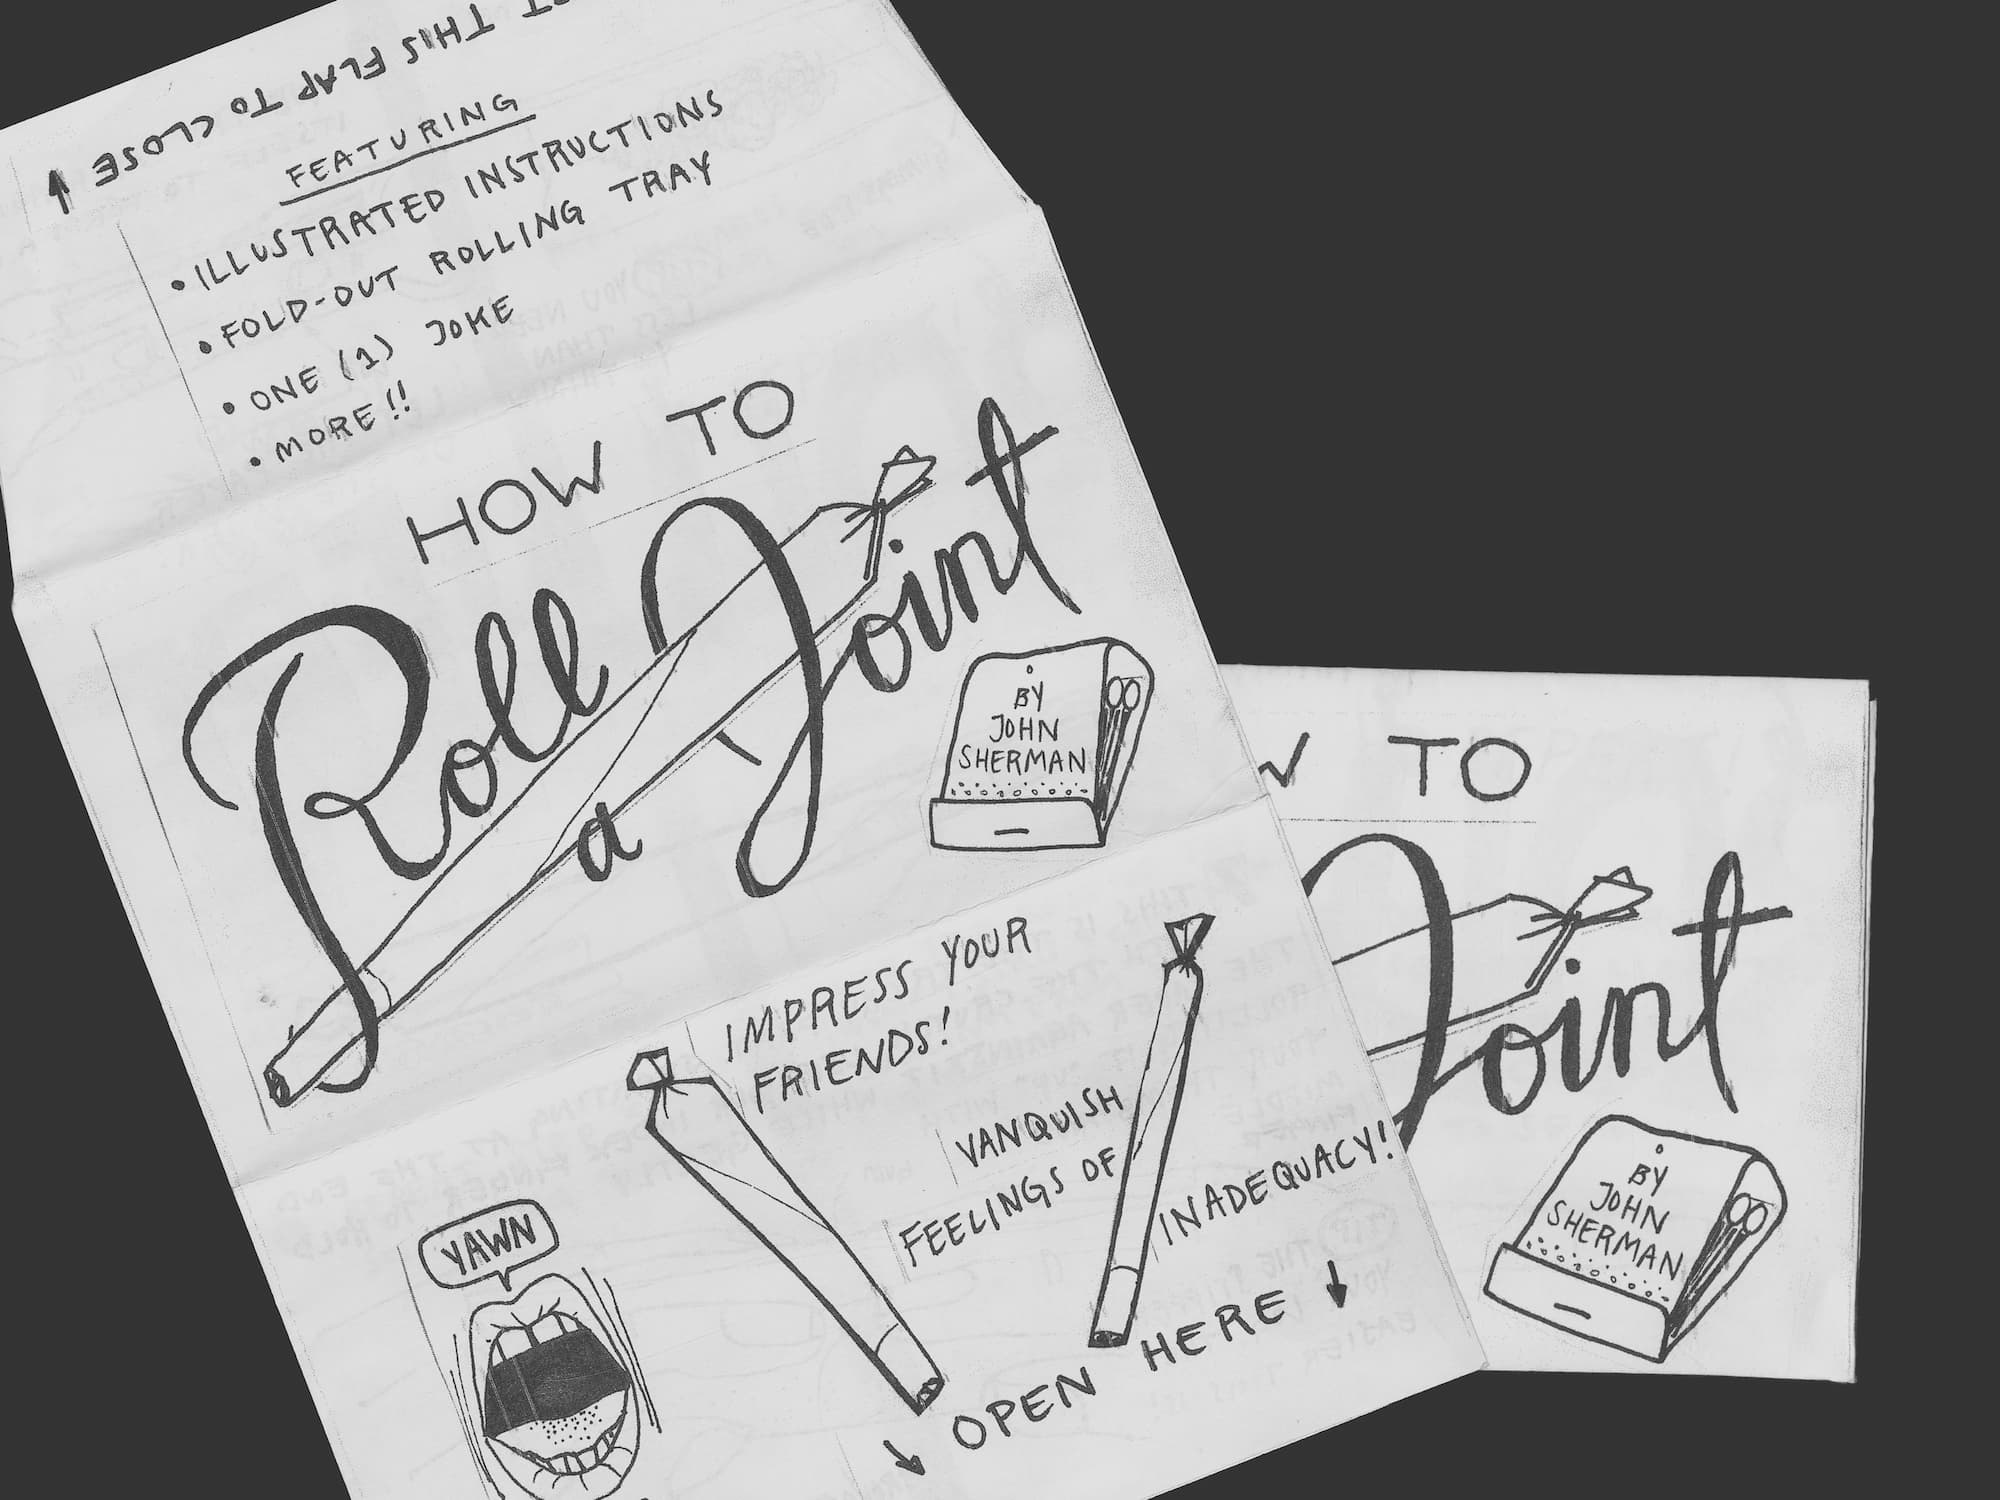 THIS FLAP TO CLOSE
FEATURING
• ILLUSTRATED INSTRUCTIONS
• FOLD-OUT ROLLING TRAY
• ONE (1) JOKE
• MORE!!
HOW TO
Roll
a
Joint
BY
JOHN
SHERMAN
IMPRESS YOUR
FRIENDS!
VANQUISH
FEELINGS OF
INADEQUACY!
YAWN
OPEN HERE
TO
Joint
BY
JOHN
SHERMAN